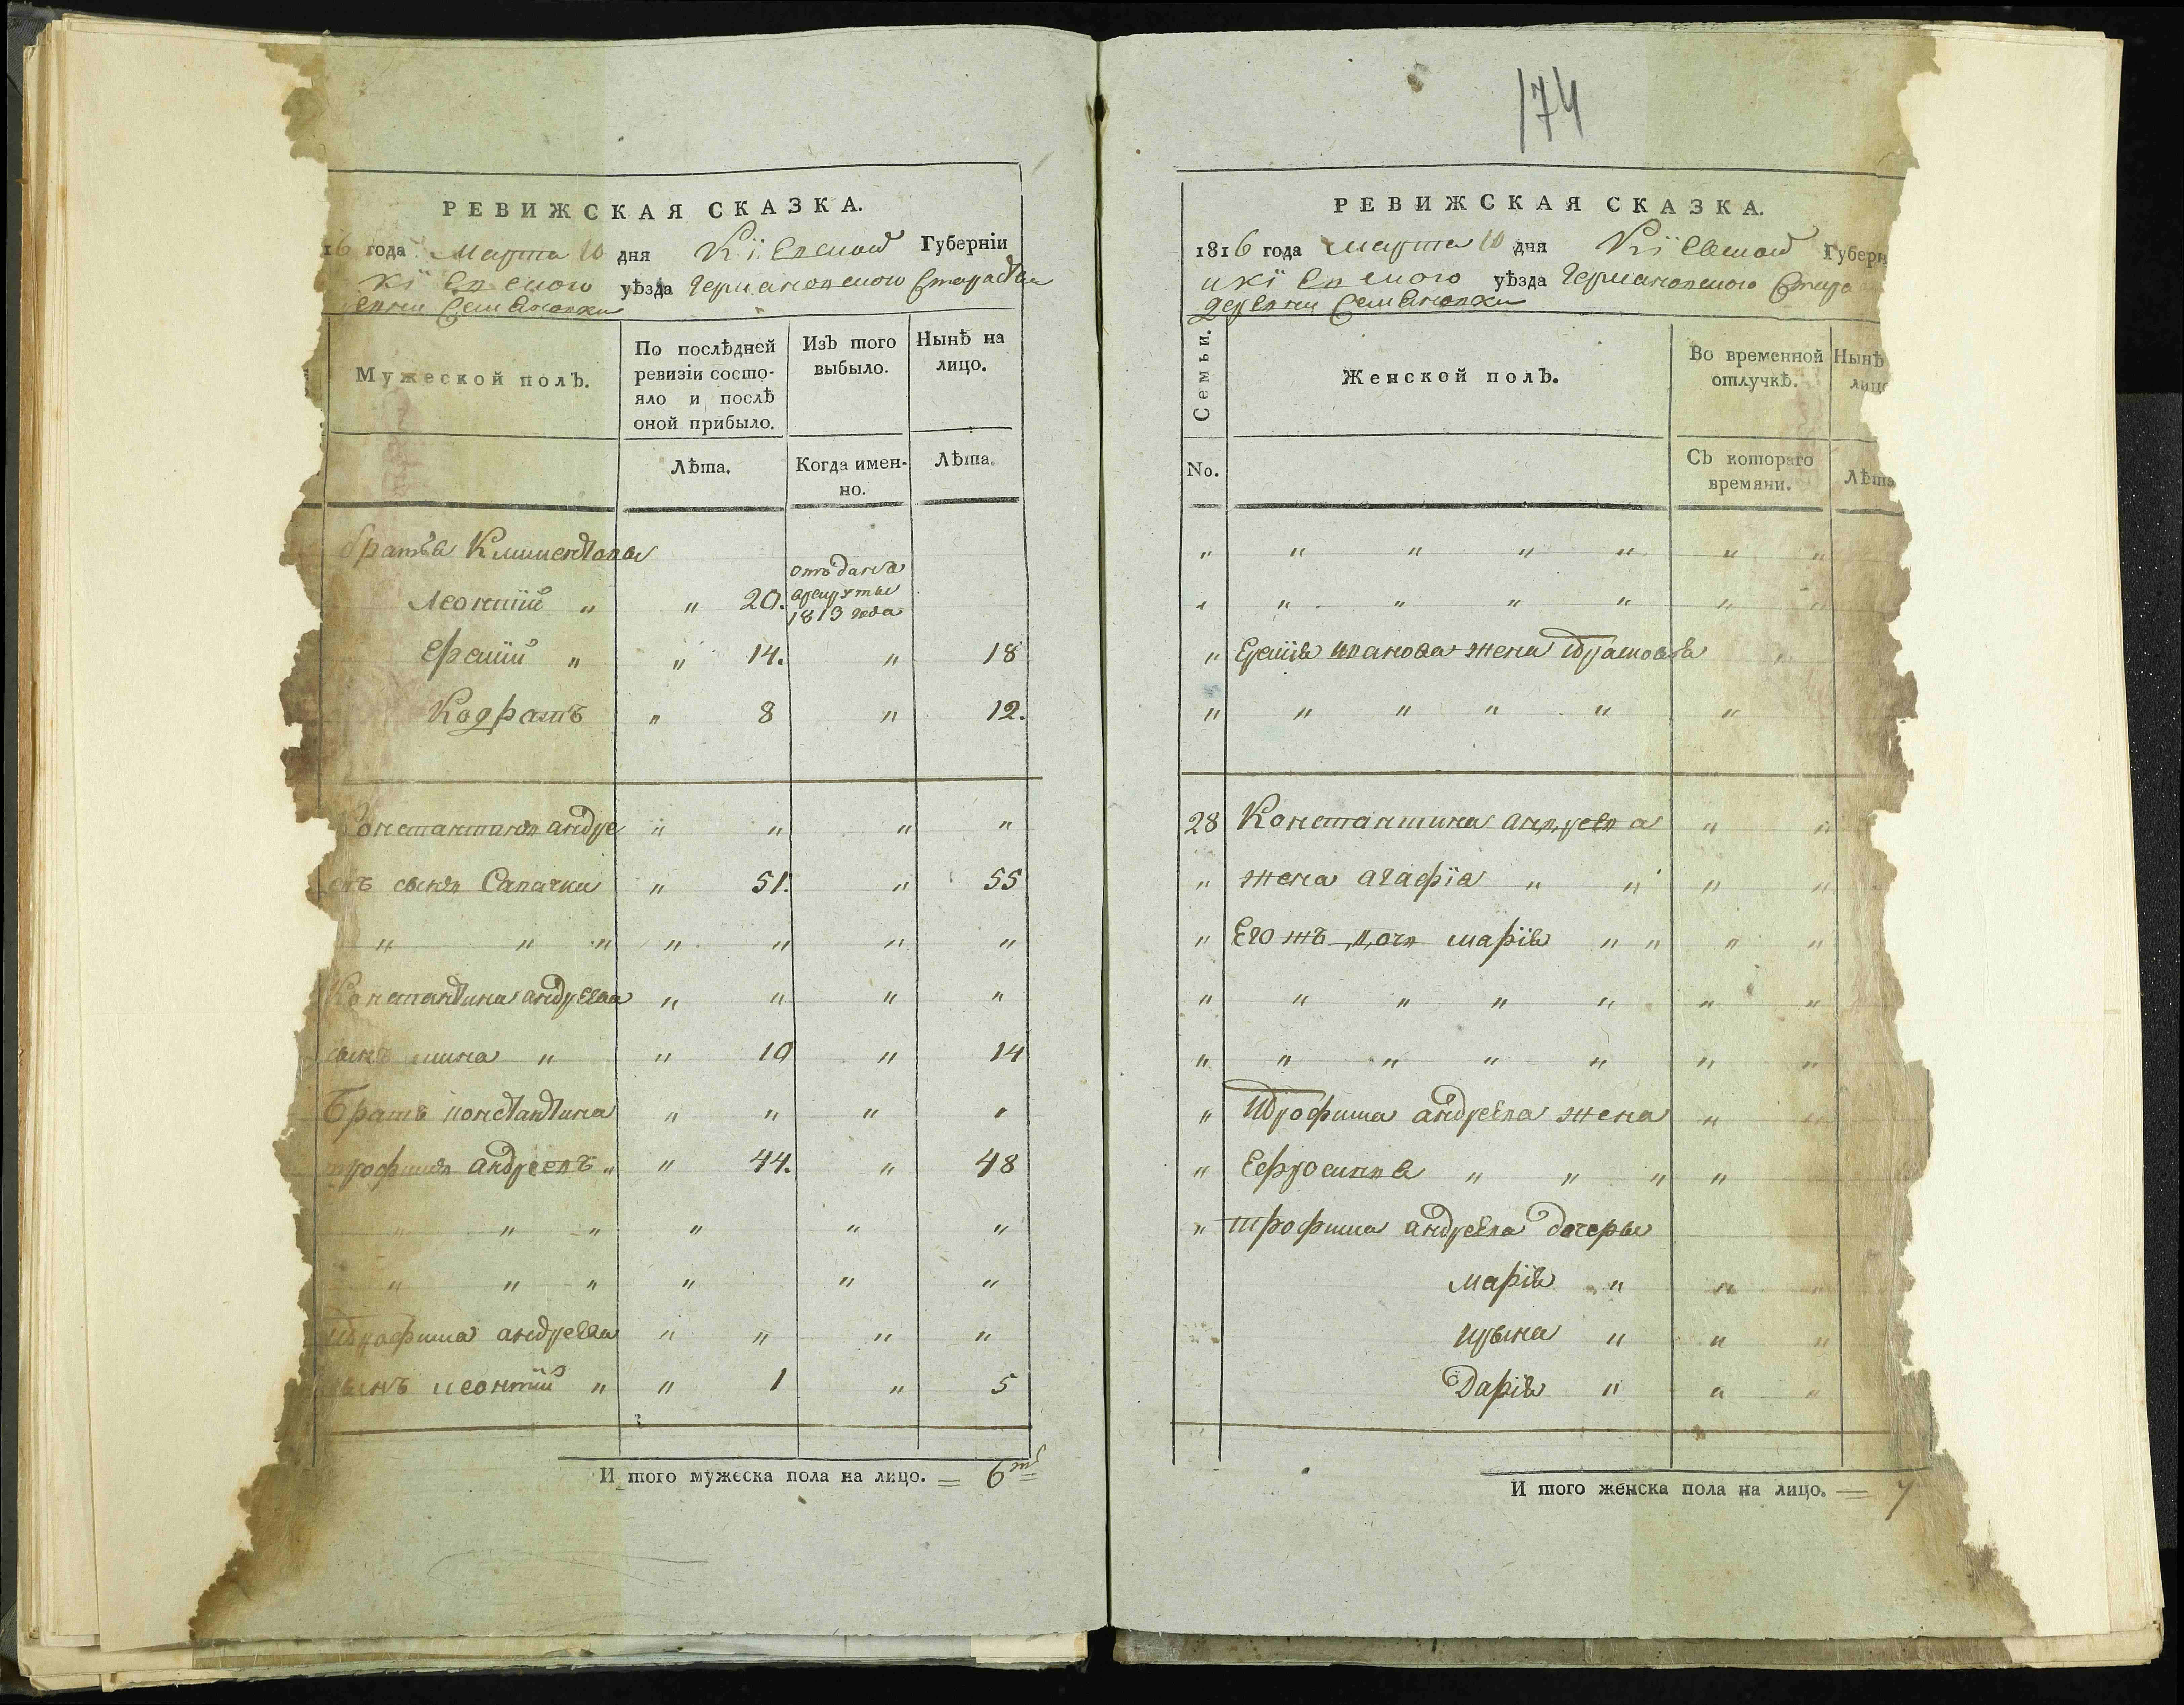 РЕВИЖСКАЯ СКАЗКА.
16 года Марта 10 дня Кїевской Губернїи
Кїевского уѣзда Германовского Староства
деревни Семеновки
Мужеской полъ.
По послѣдней ревизїи состо-
яло и послѣ
оной прибыло.
Изъ того
выбыло.
Нынѣ на
лицо.
Лѣта.
Когда имен-
но.
Лѣта.
братья Климентова
Леонтїй „ „ 20. отъдана
врекруты
1813 года
Еремїй „ „ 14. „ 18
Кодратъ „ 8 „ 12.
Константинъ андре „ „ „ „
евъ сынъ Сапачки „ 51. „ 55
„ „ „ „ „ „ „
Константина андреева „ „ „ „
сынъ мина „ „ 10 „ 14
Братъ константина „ „ „ „
трофимъ андреевъ „ „ 44. „ 48
„ „ „ „ „ „
„ „ „ „ „ „
трофима андреева „ „ „ „
сынъ леонтїй „ „ 1 „ 5
И того мужеска пола на лицо. = 6
174
РЕВИЖСКАЯ СКАЗКА.
1816 года Марта 10 дня Кїевской Губерн
Кїевского уѣзда Германовского Старо
деревни Семеновки
Семьи.
Женской полъ.
Во временной
отлучкѣ.
Нынѣ
лицо
No.
Съ котораго
времяни.
Лѣта
„ „ „ „ „ „ „
„ „ „ „ „ „ „
„ жена
„ „ „ „ „ „
28 Константина андреева „ „
„ жена агафїя „ „ „ „
„ Его жъ дочь марїя „ „ „ „
„ „ „ „ „ „ „
„ „ „ „ „ „ „
„ трофима андреева жена „ „
„ Ефросиния „ „ „ „
„ трофима андреева дочеры
марїя „ „ „
ирына „ „ „
Дарїя „ „ „
И того женска пола на лицо. = 7